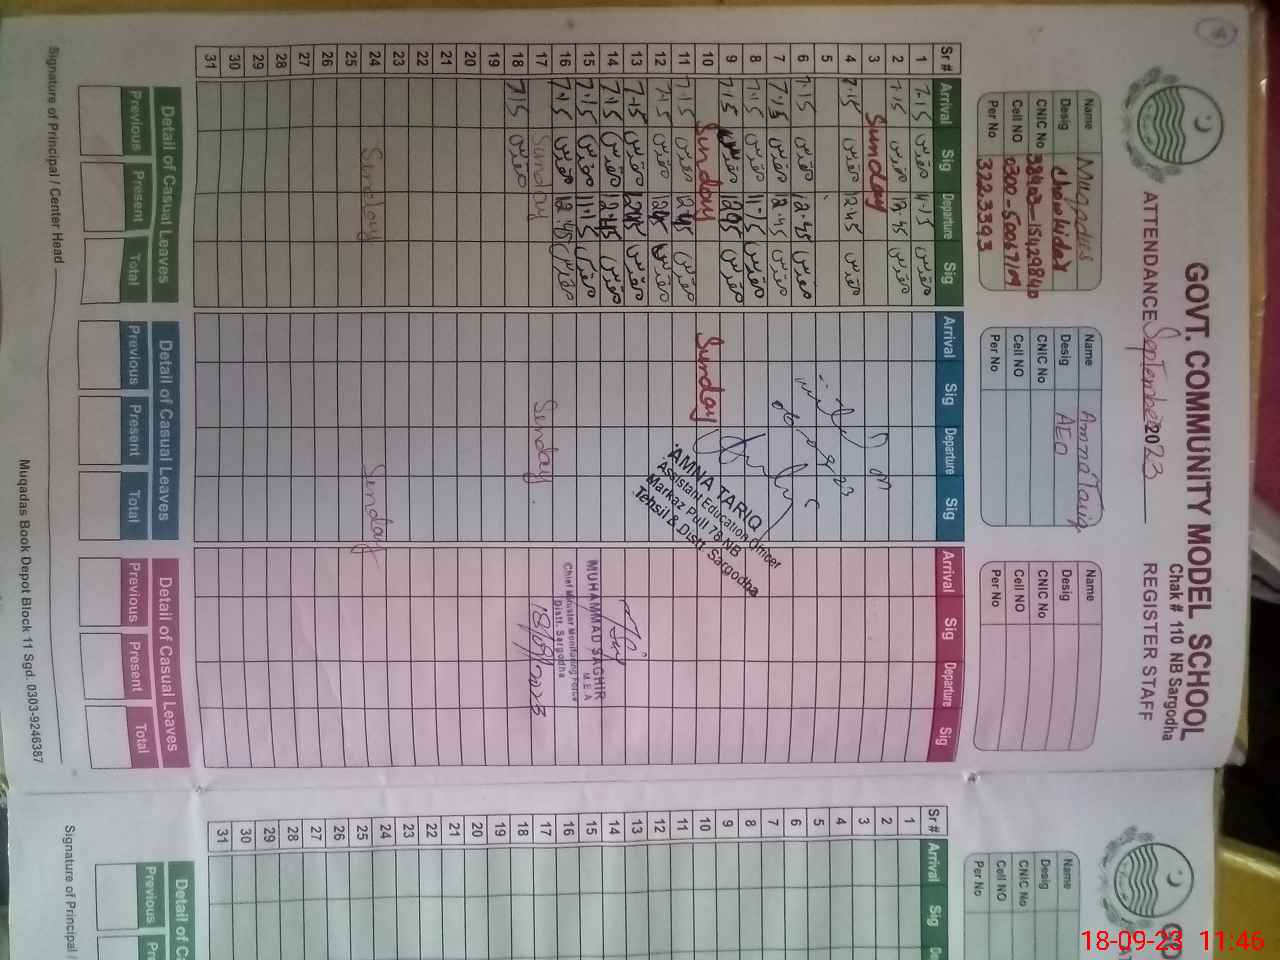 GOVT. COMMUNITY MODEL SCHOOL
Chak # 110 NB Sargodha
ATTENDANCE September 2023 REGISTER STAFF
Name Muqadus
Desig chowkidar
CNIC No
Cell NO
Per No 32233393
Name Amna Tariq
Desig AEO
CNIC No
Cell NO
Per No
Name
Desig
CNIC No
Cell NO
Per No
Sr # Arrival Sig Departure Sig Arrival Sig Departure Sig Arrival Sig Departure Sig
1 7.15 مقدس 11.15 مقدس
2 7.15 مقدس 12.45 مقدس
3 Sunday
4 7.15 مقدس 12.45 مقدس
5
6 7.15 مقدس 12.45 مقدس
7 7.15 مقدس 12.45 مقدس
8 7.15 مقدس 11.15 مقدس
9 7.15 مقدس 12.45 مقدس
10 Sunday Sunday
11 7.15 مقدس 12.45 مقدس
12 7.15 مقدس 12.45 مقدس
13 7.15 مقدس 12.45 مقدس
14 7.15 مقدس 12.45 مقدس
15 7.15 مقدس 11.15 مقدس
16 7.15 مقدس 12.45 مقدس
17 Sunday Sunday
18 7.15 مقدس
19
20
21
22
23
24 Sunday Sunday
25
26
27
28
29
30
31
AMNA TARIQ
Assistant Education Officer
Markaz Pull 78 NB
Tehsil & Distt. Sargodha
MUHAMMAD SAGHIR
M.E.A
Chief Minister Monitoring Force
Distt. Sargodha
18/09/2023
Detail of Casual Leaves Detail of Casual Leaves Detail of Casual Leaves
Previous Present Total Previous Present Total Previous Present Total
Signature of Principal / Center Head
Muqadas Book Depot Block 11 Sgd. 0303-9246387
GO
Name
Desig
CNIC No
Cell NO
Per No
Sr # Arrival Sig
1
2
3
4
5
6
7
8
9
10
11
12
13
14
15
16
17
18
19
20
21
22
23
24
25
26
27
28
29
30
31
Detail of
Previous
Signature of Principal /
18-09-23 11:46